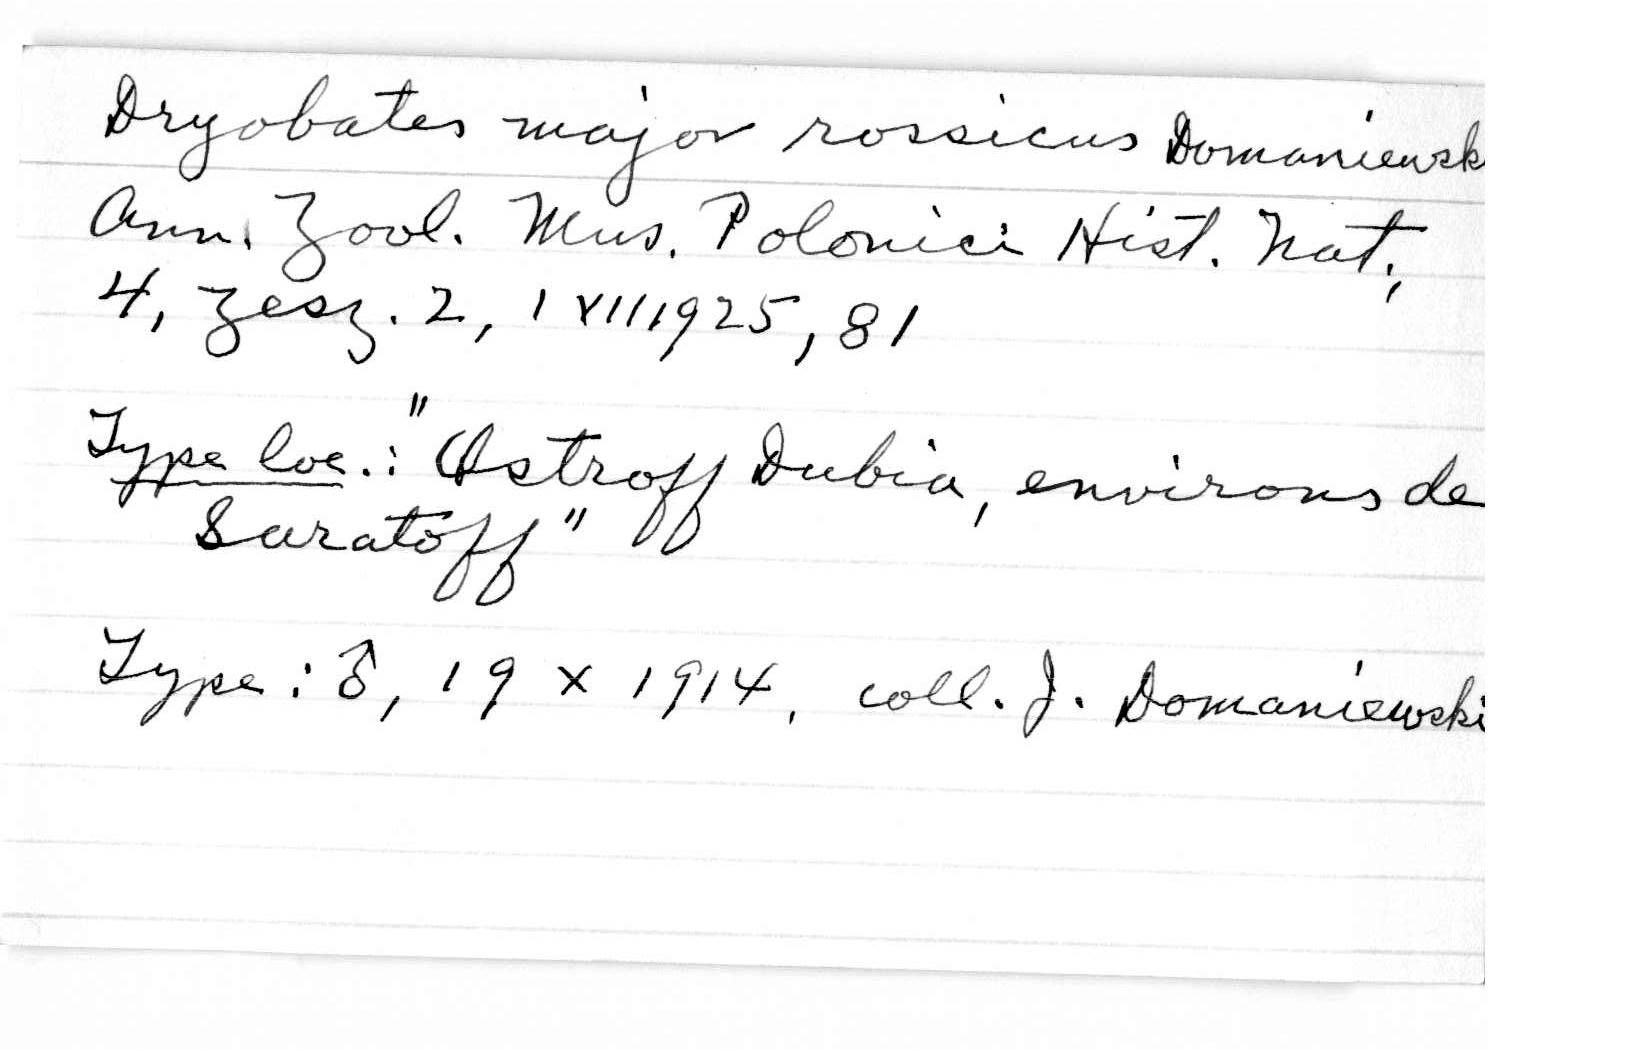 Dryobates major rossicus Domaniewsk
Ann. Zool. Mus. Polonici Hist. Nat.,
4, zesz. 2, 1 VIII 1925, 81
Type loc.: "Ostroff Dubia, environs de
Saratoff"
Type: ♂, 19 X 1914, coll. J. Domaniewski